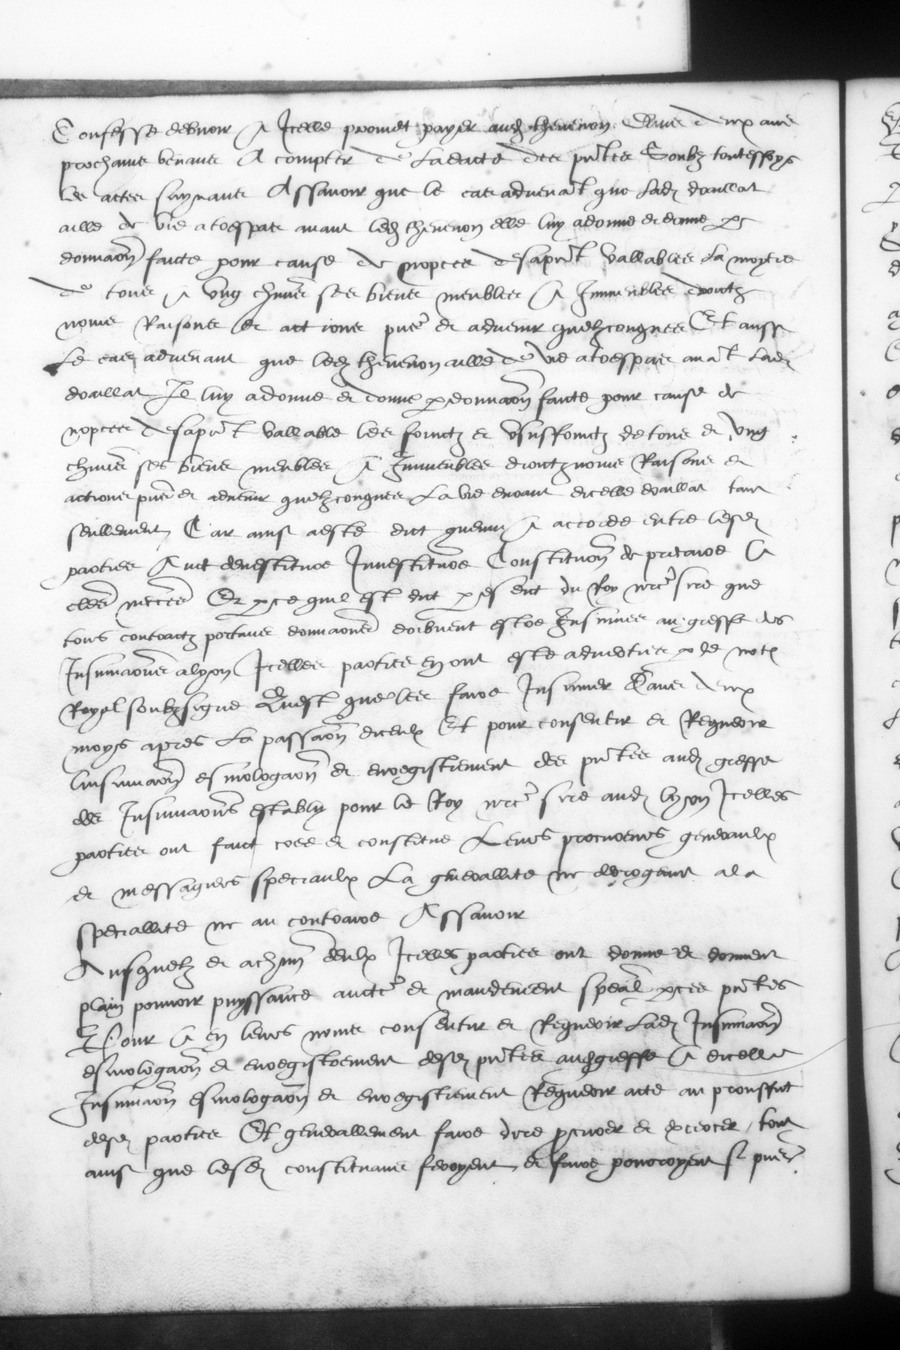 Confesse debvoir & Icelle promet payer aud thevenon Dans deux ans
prochains venans A compter de La date des pntes Soubz toutesfoys
les actes suyvans Assavoir que le cas advenat que Lad douillat
aille de vie a trespas avant led thevenon elle luy a donne et donne p
donnaon faicte pour cause de nopces desapnt vallables La moytie
de tous & ung chuns ses biens meubles & Immeubles droictz
noms Raisons et actions pns et advenir quelzconques Et aussi
Le cas advenant que led thevenon aille de vie a trespas avat Lad
douillat Il luy a donne et donne p donnaon faicte pour cause de
nopces desapnt vallable les fruictz et usuffruictz de tous et ung
chuns ses biens meubles & Immeubles droictz noms Raisons et
actions pns et advenir quelzconques La vie durant dicelle douillat tant
seullement Car ainsi a este dict & accorde entre lesd
parties Avec devestitues Investitues Constituon de precaire &
clles necces Et pce quil est dict p esdict du Roy nre sire que
tous contractz portans donnaons doibvent estre Insinues au greffe des
Insinuaons a lyon Icelles parties en ont este adverties p le note
Royal soubzsigne Quest que les faire Insinuer Dans deux
moys apres La passaon diceulx Et pour consentir et Requerir
linsinuaon esmologaon et enregistrement des pntes aud greffe
des Insinuaons estably pour le Roy nre sire aud lyon Icelles
parties ont faict cree et constitue Leurs procureurs generaulx
et messagiers speciaulx La generallite ne derogeant a la
speciallite ne au contraire Assavoir
Ausquelz et achun deulx Icelles parties ont donne et donnent
plain pouvoir puyssance aucte et mandement special p ces pntes
Pour & en leurs noms consentir et Requerir Lad Insinuaon
esmologaon et enregistrement desd pntes aud greffe & dicelle
Insinuaon esmologaon et enregistrement Requerir acte au prouffict
desd parties Et generallement faire dire pcurer et exercer tout
ainsi que lesd constituans feroyent et faire pourroyent si pns